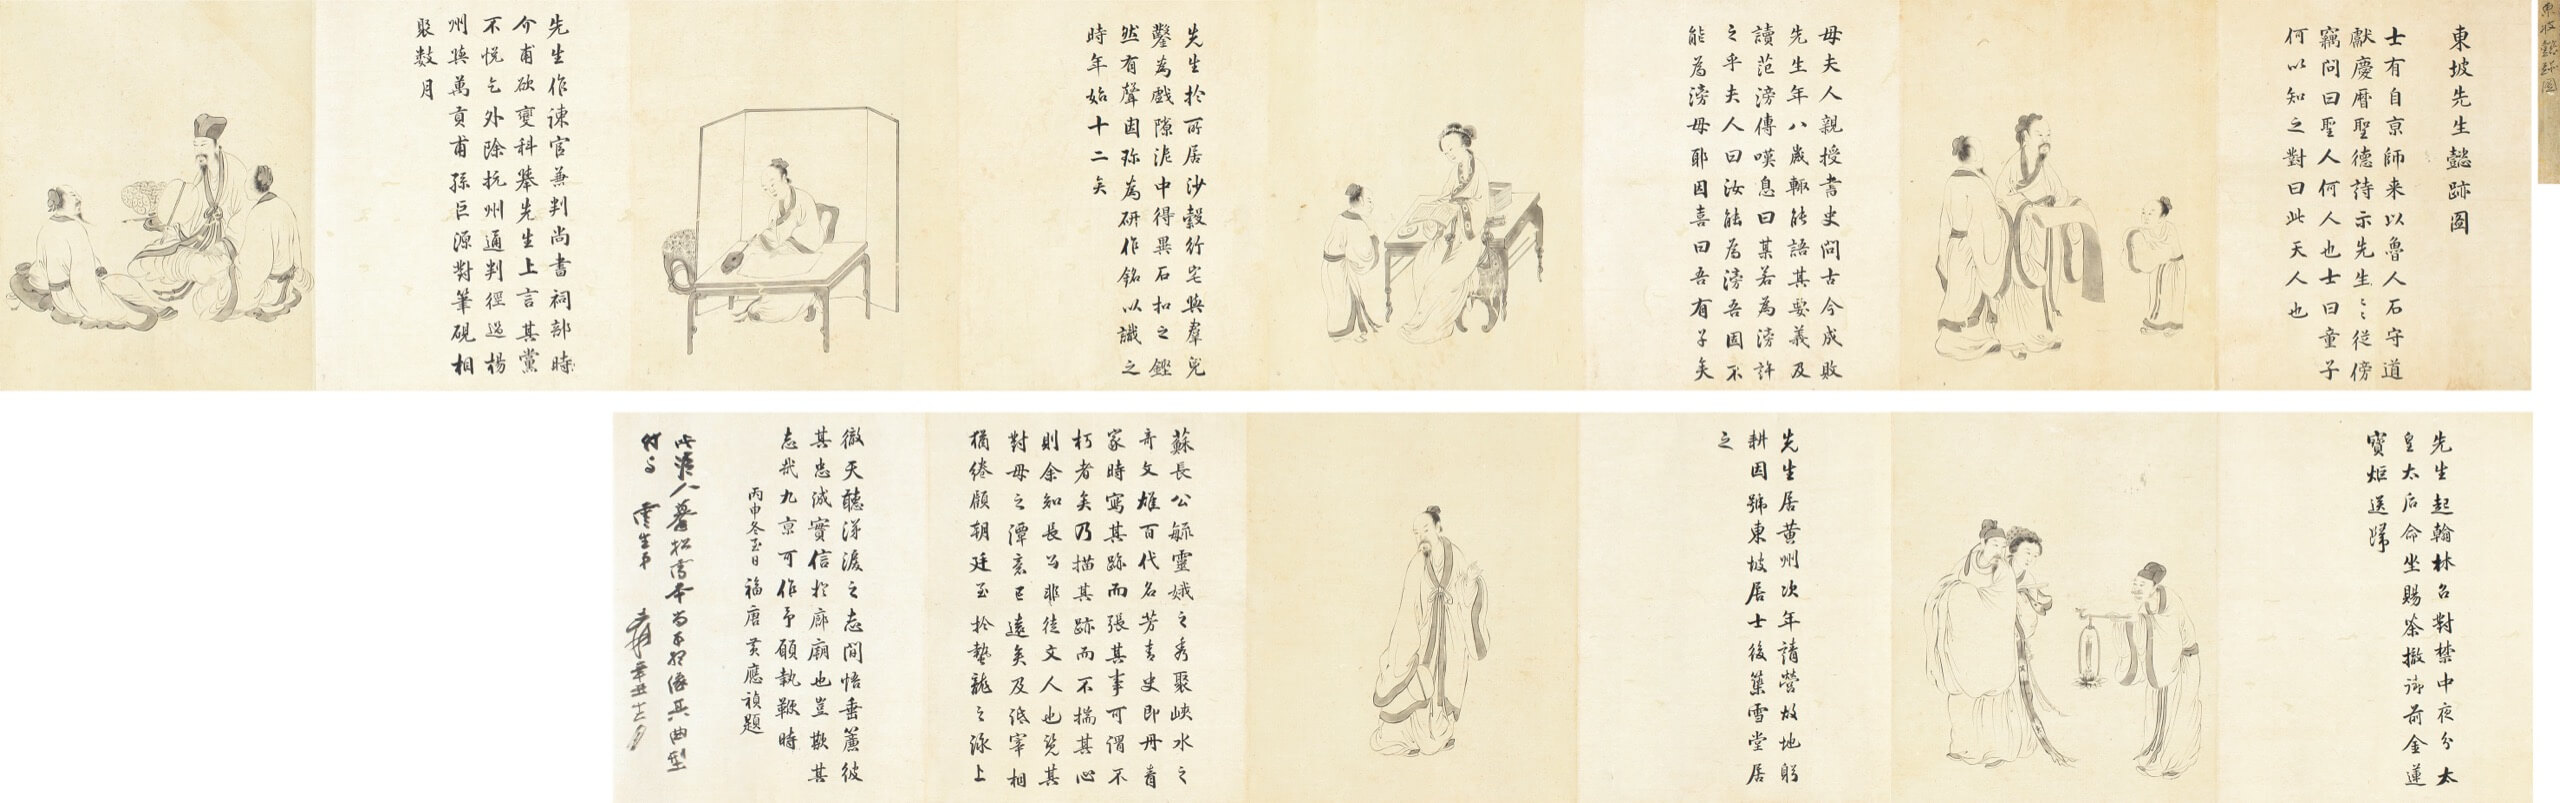 東坡先生懿跡圖
士有自京師来以魯人石守道
獻慶曆聖德詩示先生〻從傍
竊問曰聖人何人也士曰童子
何以知之對曰此天人也
母夫人親授書史問古今成敗
先生年八歲輒能語其要義及
讀范滂傳嘆息曰某若為滂許
之乎夫人曰汝能為滂吾固不
能為滂母耶因喜曰吾有子矣
先生於所居沙縠行宅與羣兒
鑿為戲隙泥中得異石扣之鏗
然有聲因琢為研作銘以識之
時年始十二矣
先生作諫官兼判尚書祠部時
介甫欲變科舉先生上言其黨
不悅乞外除杭州通判徑過楊
州與萬貢甫孫巨源對筆硯相
聚数月
先生起翰林召對禁中夜分太
皇太后命坐賜茶撤御前金蓮
寶炬送歸
先生居黃州次年請營故地躬
耕因號東坡居士後築雪堂居
之
蘇長公毓靈娥之秀聚峽水之
奇文雄百代名芳青史即丹青
家時寫其跡而張其事可謂不
朽者矣乃描其跡而不揣其心
則余知長公非徒文人也覧其
對母之潭意已遠矣及
相
猶惓顧朝廷至於蟄龍之詠上
徹天聽涕淚之志間悟垂簾彼
其忠誠實信於廊廟也豈欺其
志哉九京可作予願執鞭時
丙申冬至日福唐黃應禎題
此滬人摹松雪本尚不
其典型
辛丑十二月
東坡懿跡圖